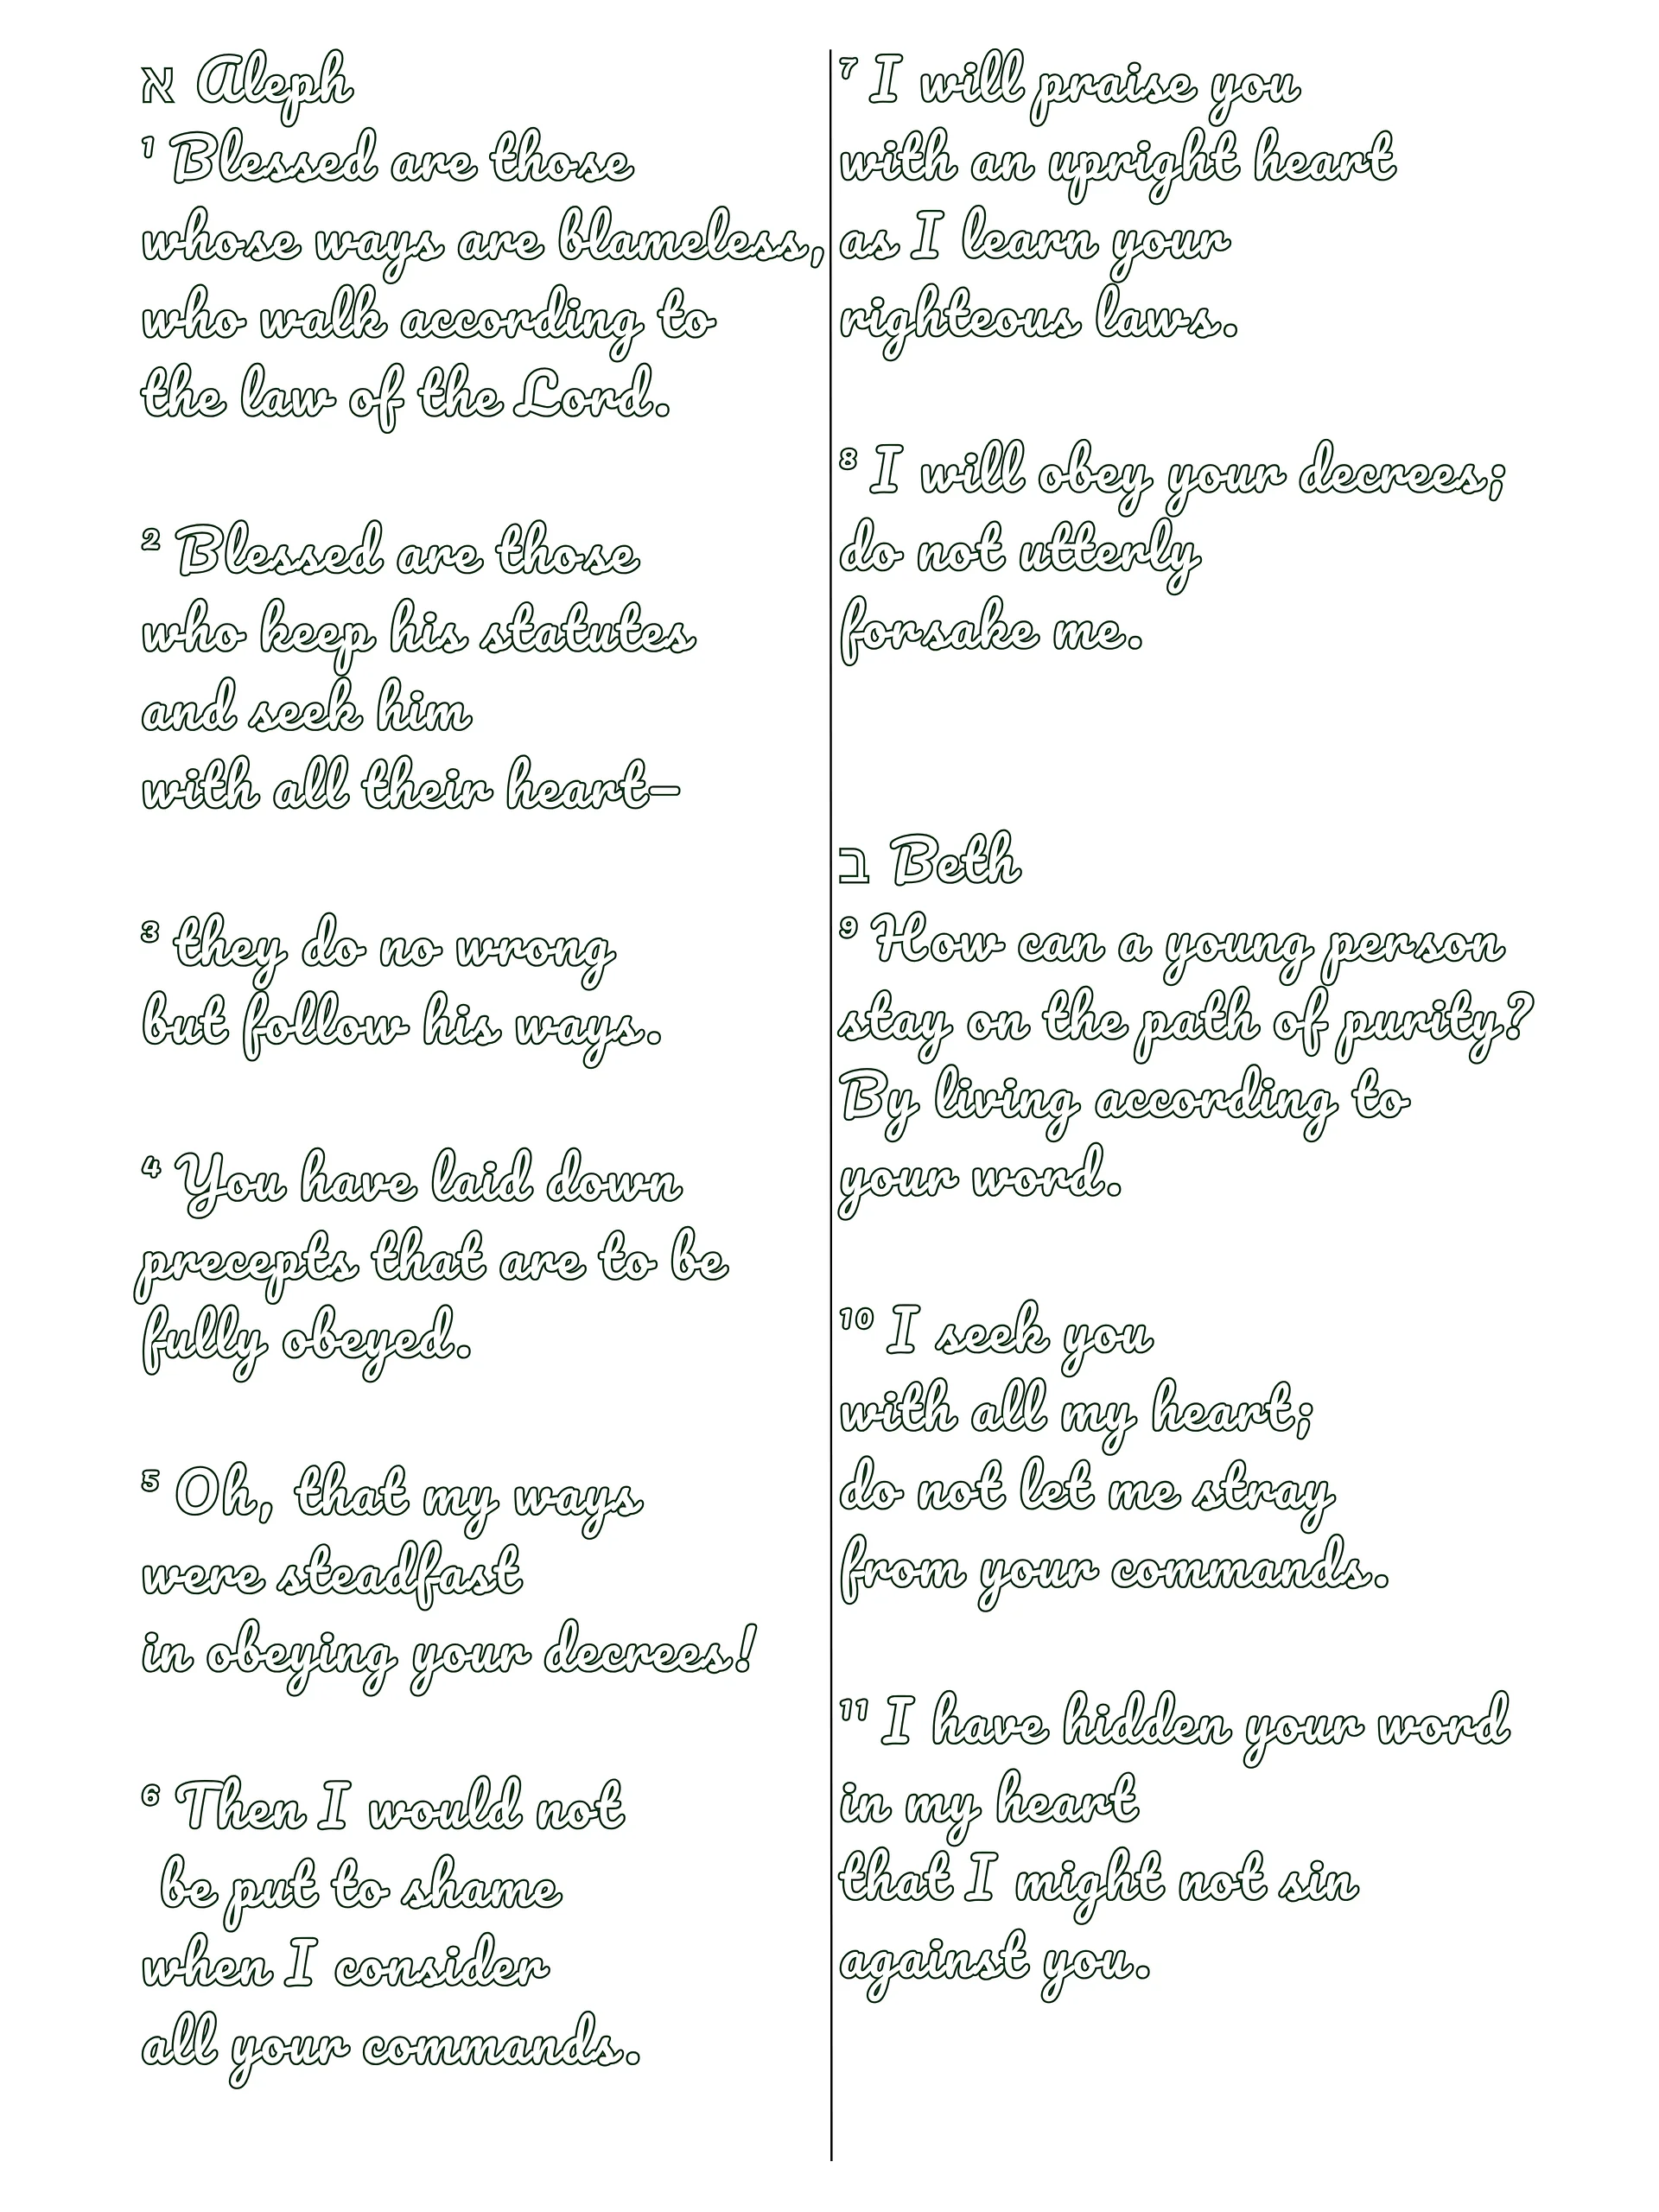 א Aleph
¹ Blessed are those
whose ways are blameless,
who walk according to
the law of the Lord.
² Blessed are those
who keep his statutes
and seek him
with all their heart—
³ they do no wrong
but follow his ways.
⁴ You have laid down
precepts that are to be
fully obeyed.
⁵ Oh, that my ways
were steadfast
in obeying your decrees!
⁶ Then I would not
be put to shame
when I consider
all your commands.
⁷ I will praise you
with an upright heart
as I learn your
righteous laws.
⁸ I will obey your decrees;
do not utterly
forsake me.
ב Beth
⁹ How can a young person
stay on the path of purity?
By living according to
your word.
¹⁰ I seek you
with all my heart;
do not let me stray
from your commands.
¹¹ I have hidden your word
in my heart
that I might not sin
against you.